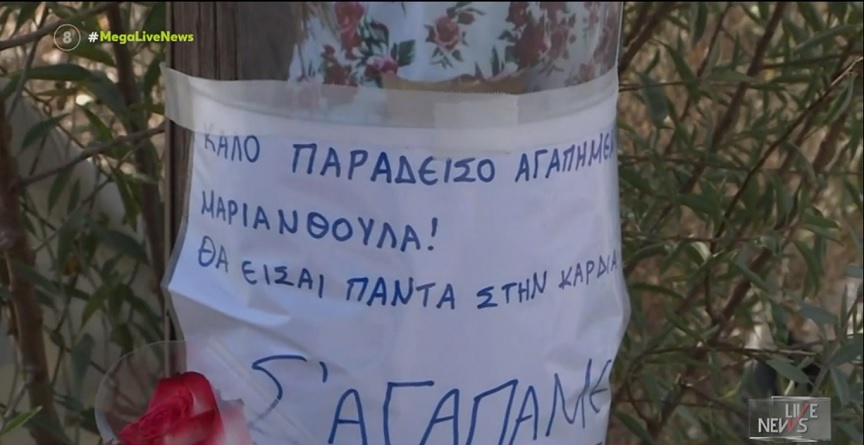 8 #MegaLiveNews
ΚΑΛΟ ΠΑΡΑΔΕΙΣΟ ΑΓΑΠΗΜΕΝ
ΜΑΡΙΑΝΘΟΥΛΑ!
ΘΑ ΕΙΣΑΙ ΠΑΝΤΑ ΣΤΗΝ ΚΑΡΔΙΑ
Σ'ΑΓΑΠΑΜΕ
LIVE
NEWS